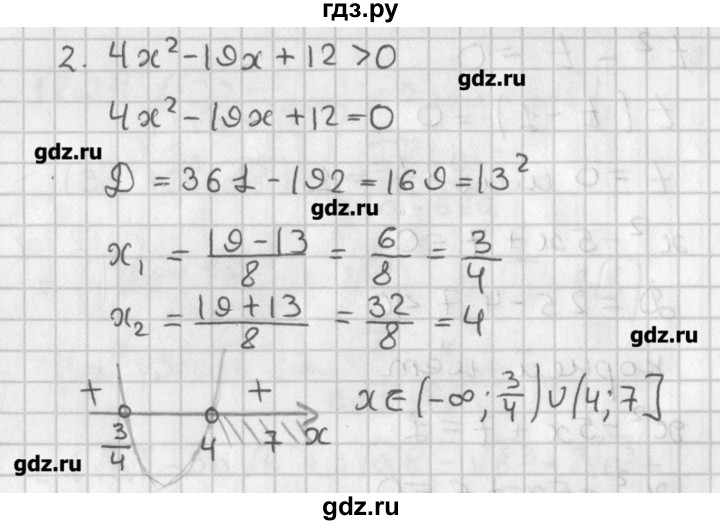 гдз.ру
2. 4x² - 19x + 12 > 0
gdz.ru
4x² - 19x + 12 = 0
gdz.ru
D = 361 - 192 = 169 = 13²
gdz.ru
x₁ = (19 - 13)/8 = 6/8 = 3/4
x₂ = (19 + 13)/8 = 32/8 = 4
gdz.ru
+ + x ∈ (-∞; 3/4) ∪ (4; 7]
3/4 4 7 x
gdz.ru
gdz.ru